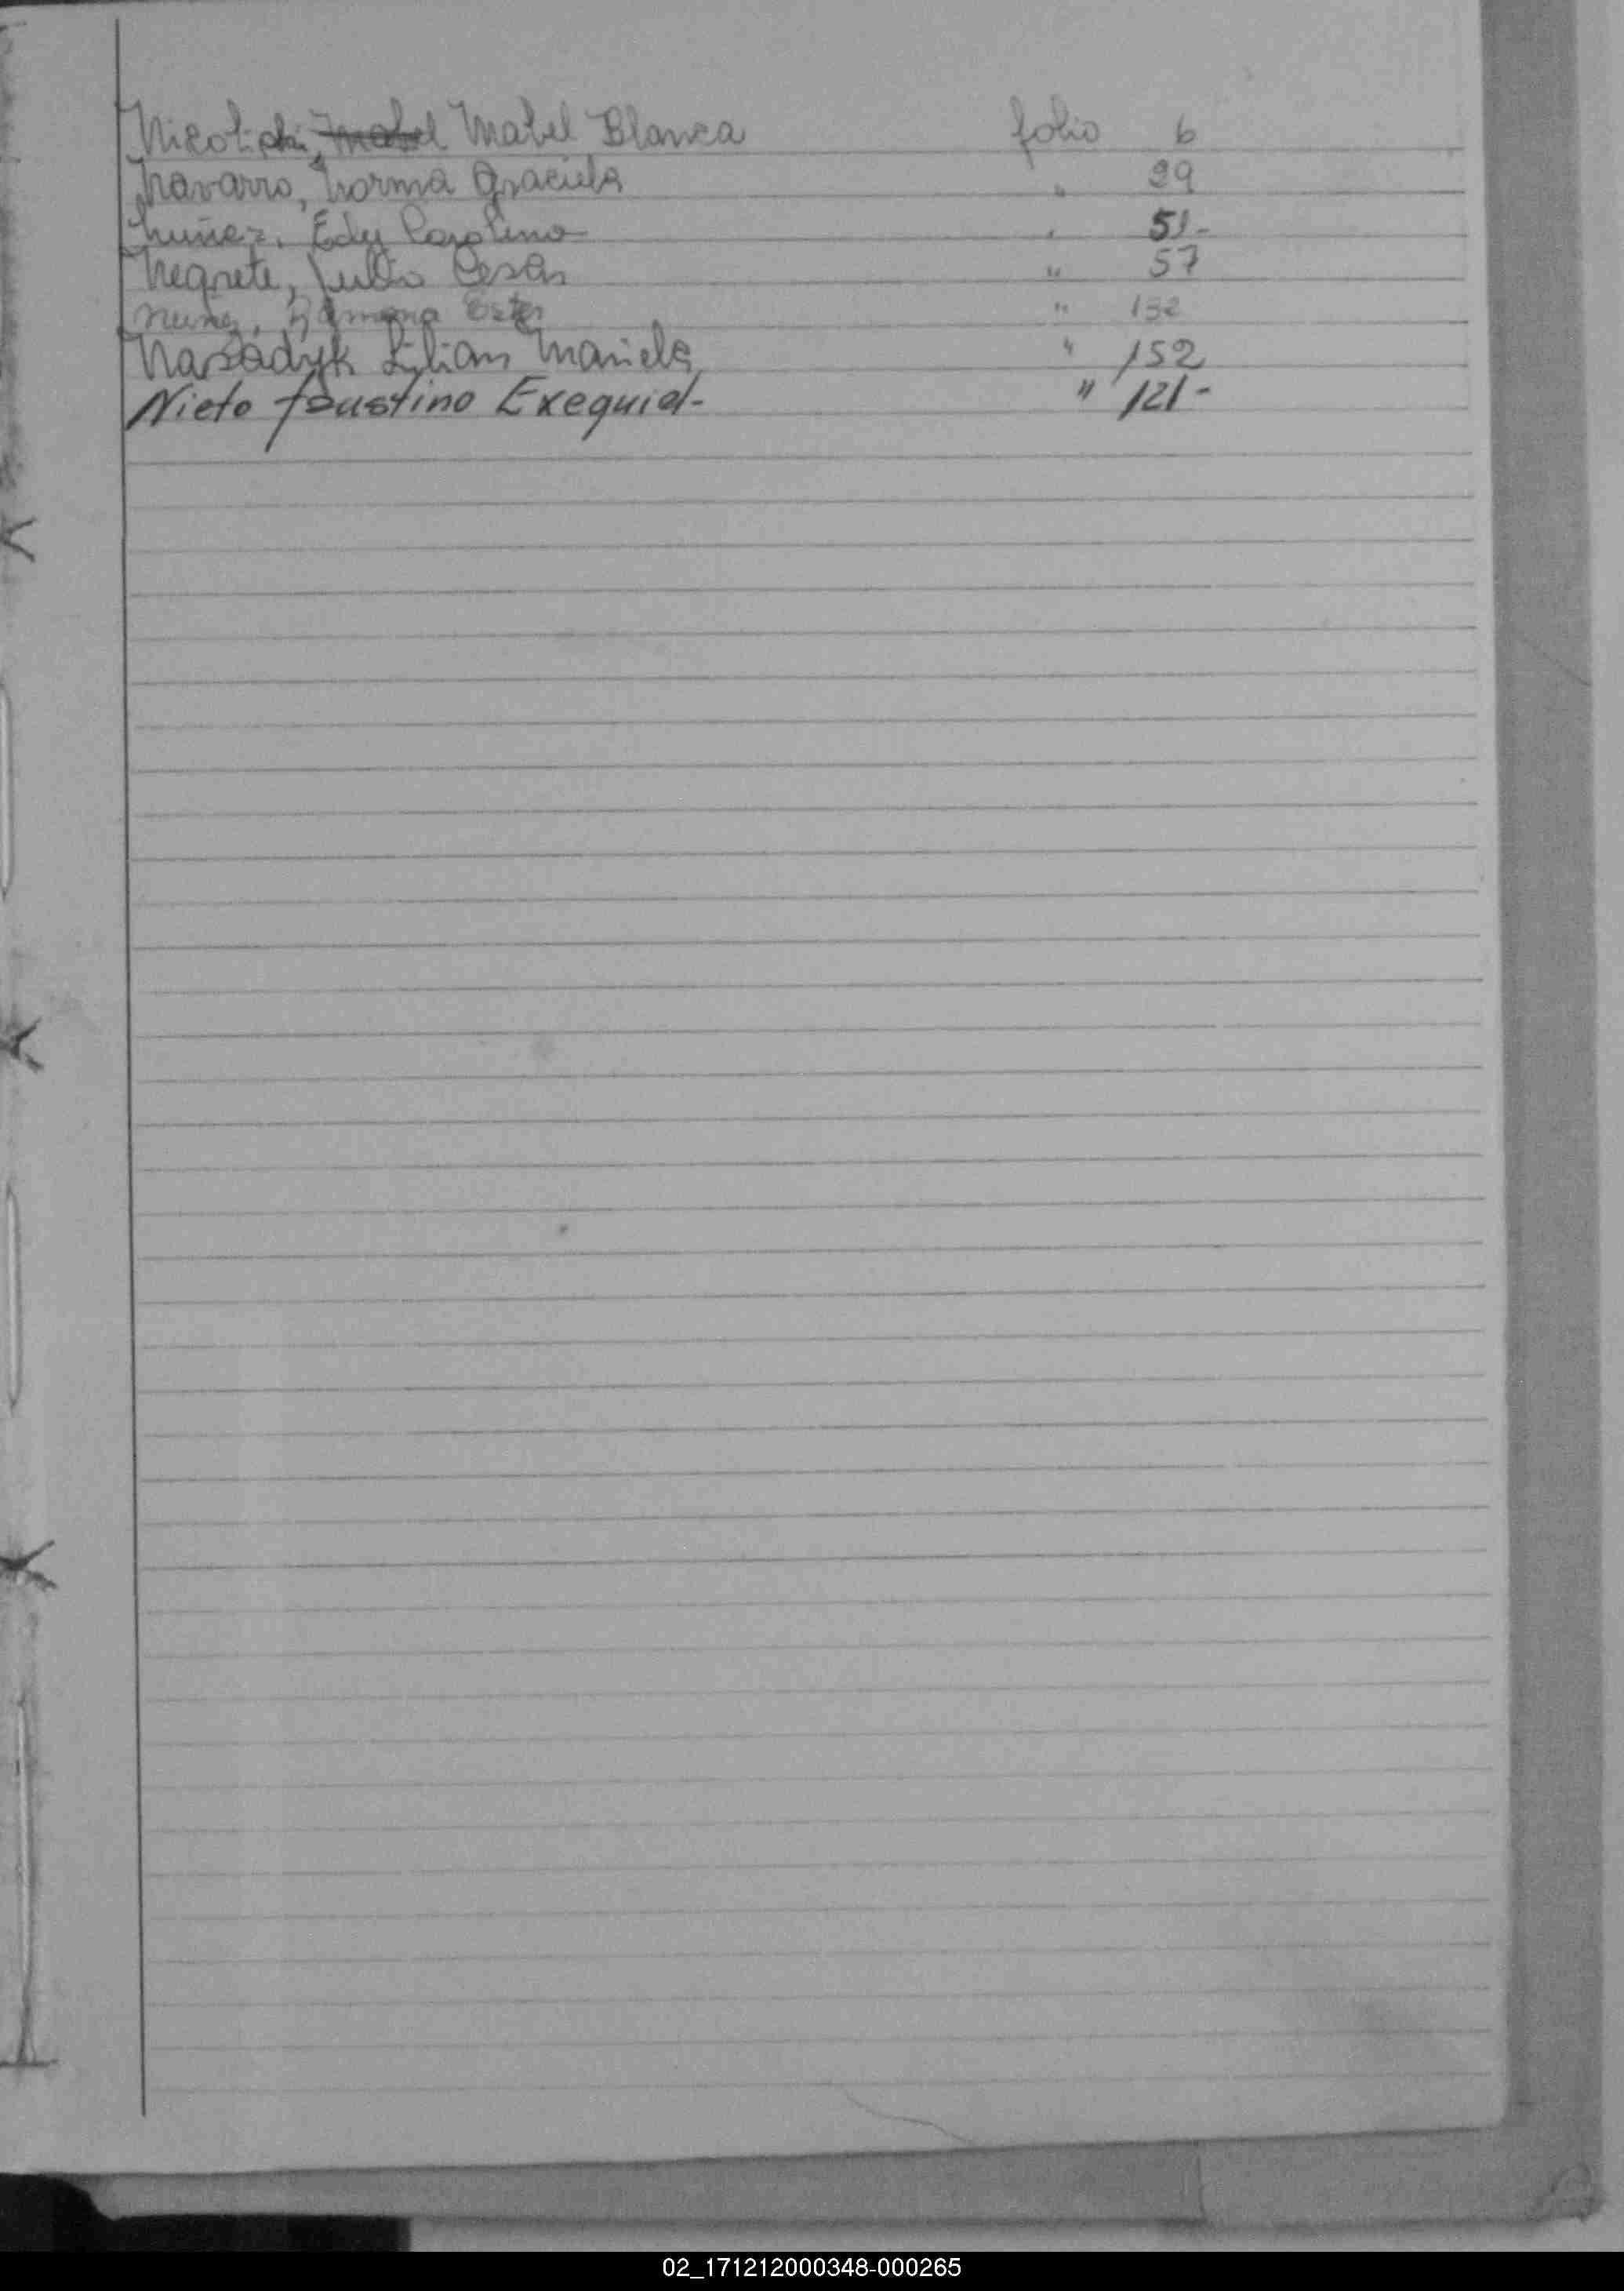 Nicolichi, Mabel Mabel Blanca folio 6
Navarro, Norma Graciela " 29
Nuñez, Edy Carolina " 51-
Negrete, Julio Cesar " 57
Nuñez, Ramona Ester " 132
Narsadyk Lilian Mariela " 152
Nieto faustino Exequiel- " 121-
02_171212000348-000265